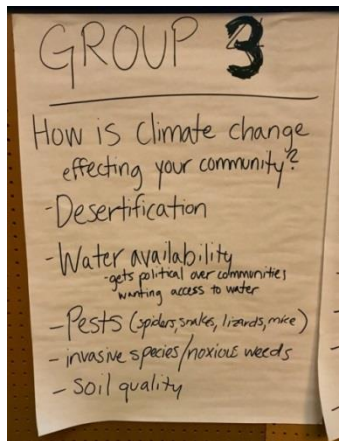 GROUP 3
How is climate change
effecting your community?
- Desertification
- Water availability
- gets political over communities
wanting access to water
- Pests (spiders, snakes, lizards, mice)
- invasive species/noxious weeds
- Soil quality